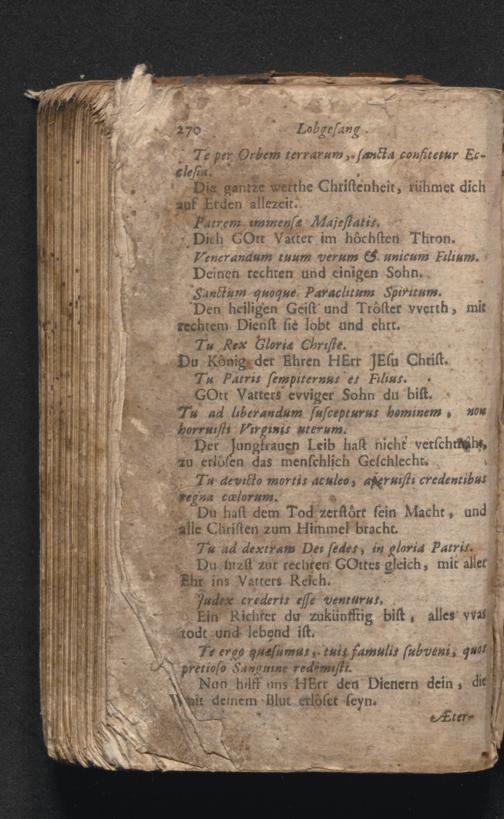 270 Lobgeſang.
Te per Orbem terrarum, ſancta confitetur Ec-
cleſia.
Die gantze werthe Chriſtenheit, rühmet dich
auf Erden allezeit.
Patrem immenſæ Majeſtatis.
Dich GOtt Vatter im hôchſten Thron.
Venerandum tuum verum & unicum Filium.
Deinen rechten und einigen Sohn.
Sanctum quoque Paraclitum Spiritum.
Den heiligen Geiſt und Trôſter vverth, mit
rechtem Dienſt ſie lobt und ehrt.
Tu Rex Gloriæ Chriſte.
Du Kônig der Ehren HErr JEſu Chriſt.
Tu Patris ſempiternus es Filius.
GOtt Vatters evviger Sohn du biſt.
Tu ad liberandum ſuſcepturus hominem, non
horruiſti Virginis uterum.
Der Jungfrauen Leib haſt nicht verſchmäht,
zu erlôſen das menſchlich Geſchlecht.
Tu devicto mortis aculeo, aperuiſti credentibus
regna cœlorum.
Du haſt dem Tod zerſtôrt ſein Macht, und
alle Chriſten zum Himmel bracht.
Tu ad dextram Dei ſedes, in gloria Patris.
Du ſitzſt zur rechten GOttes gleich, mit aller
Ehr ins Vatters Reich.
Judex crederis eſſe venturus.
Ein Richter du zukünfftig biſt, alles vvas
todt und lebend iſt.
Te ergo quæſumus, tuis famulis ſubveni, quos
pretioſo Sanguine redemiſti.
Nun hilff uns HErr den Dienern dein, die
mit deinem Blut erlôſet ſeyn.
Æter-